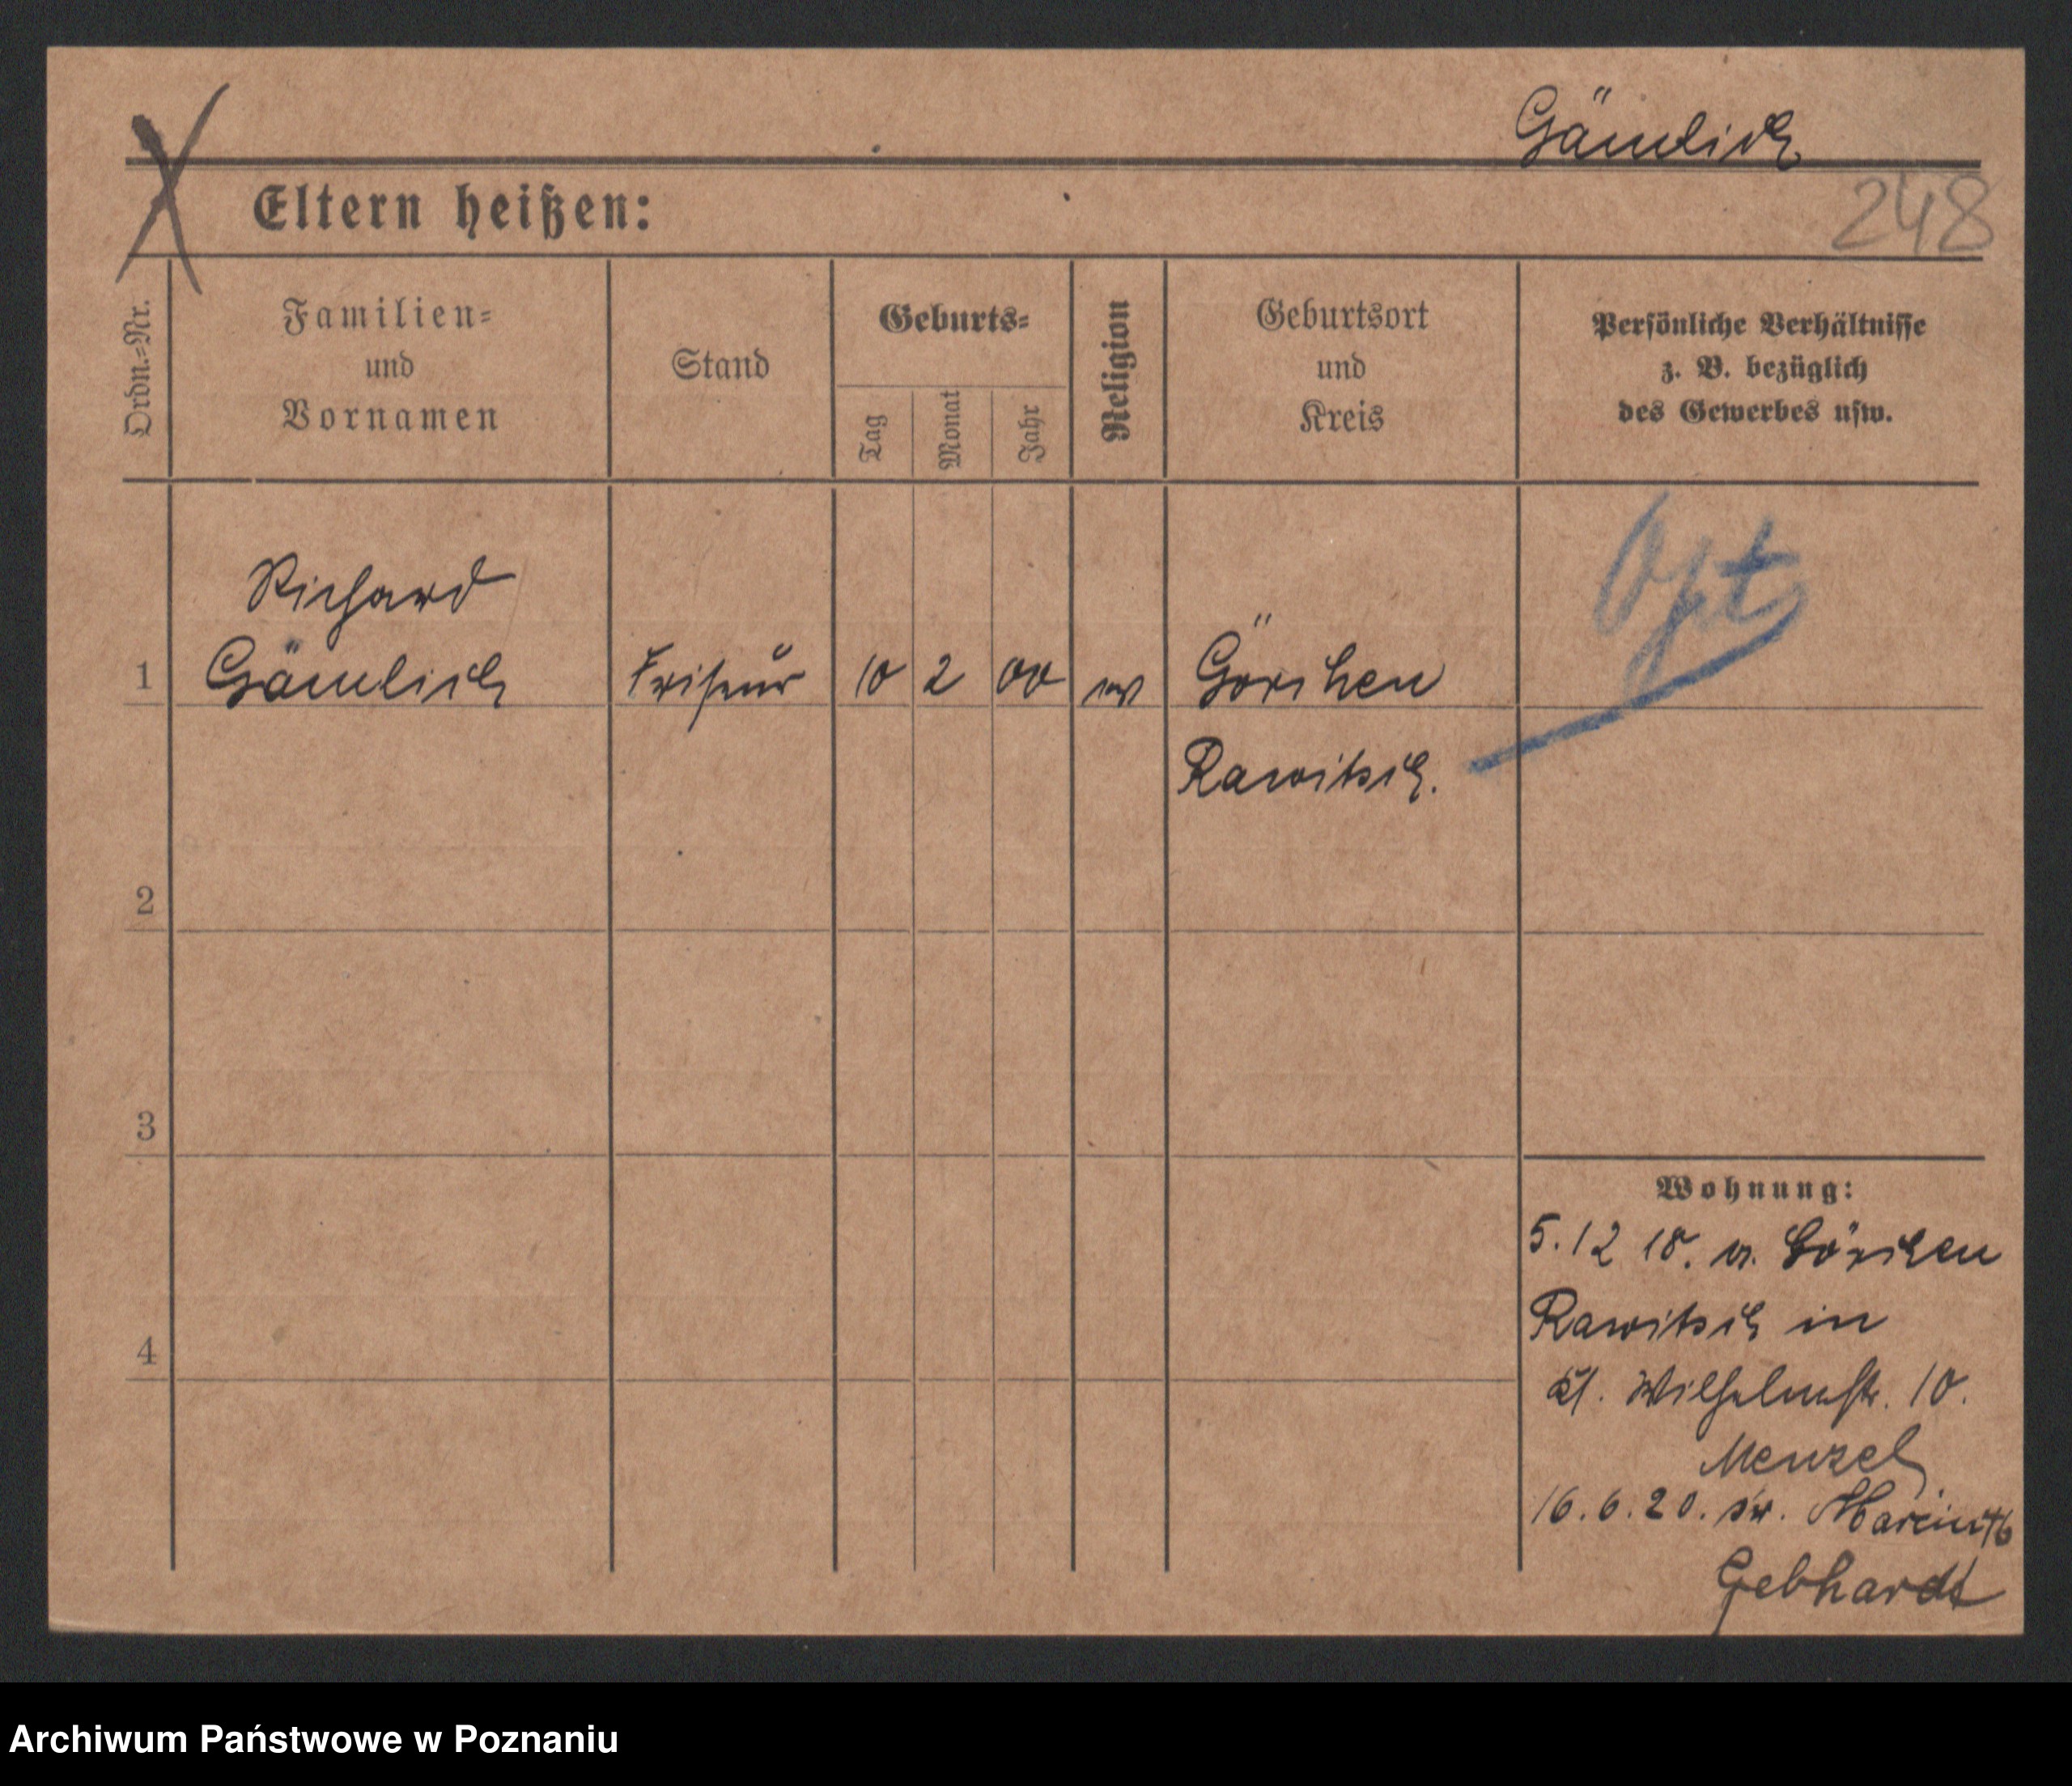 Gämlich
Eltern heißen:
248
Ordn.-Nr.
Familien-
und
Vornamen
Stand
Geburts-
Tag
Monat
Jahr
Religion
Geburtsort
und
Kreis
Persönliche Verhältnisse
z. B. bezüglich
des Gewerbes usw.
Opt
Richard
1 Gämlich Friseur 10 2 00 Görchen
Rawitsch.
2
3
4
Wohnung:
5.12 18. v. Görchen
Rawitsch in
Kl. Wilhelmstr. 10.
Menzel
16.6.20. św. Marcin 46
Gebhardt
Archiwum Państwowe w Poznaniu